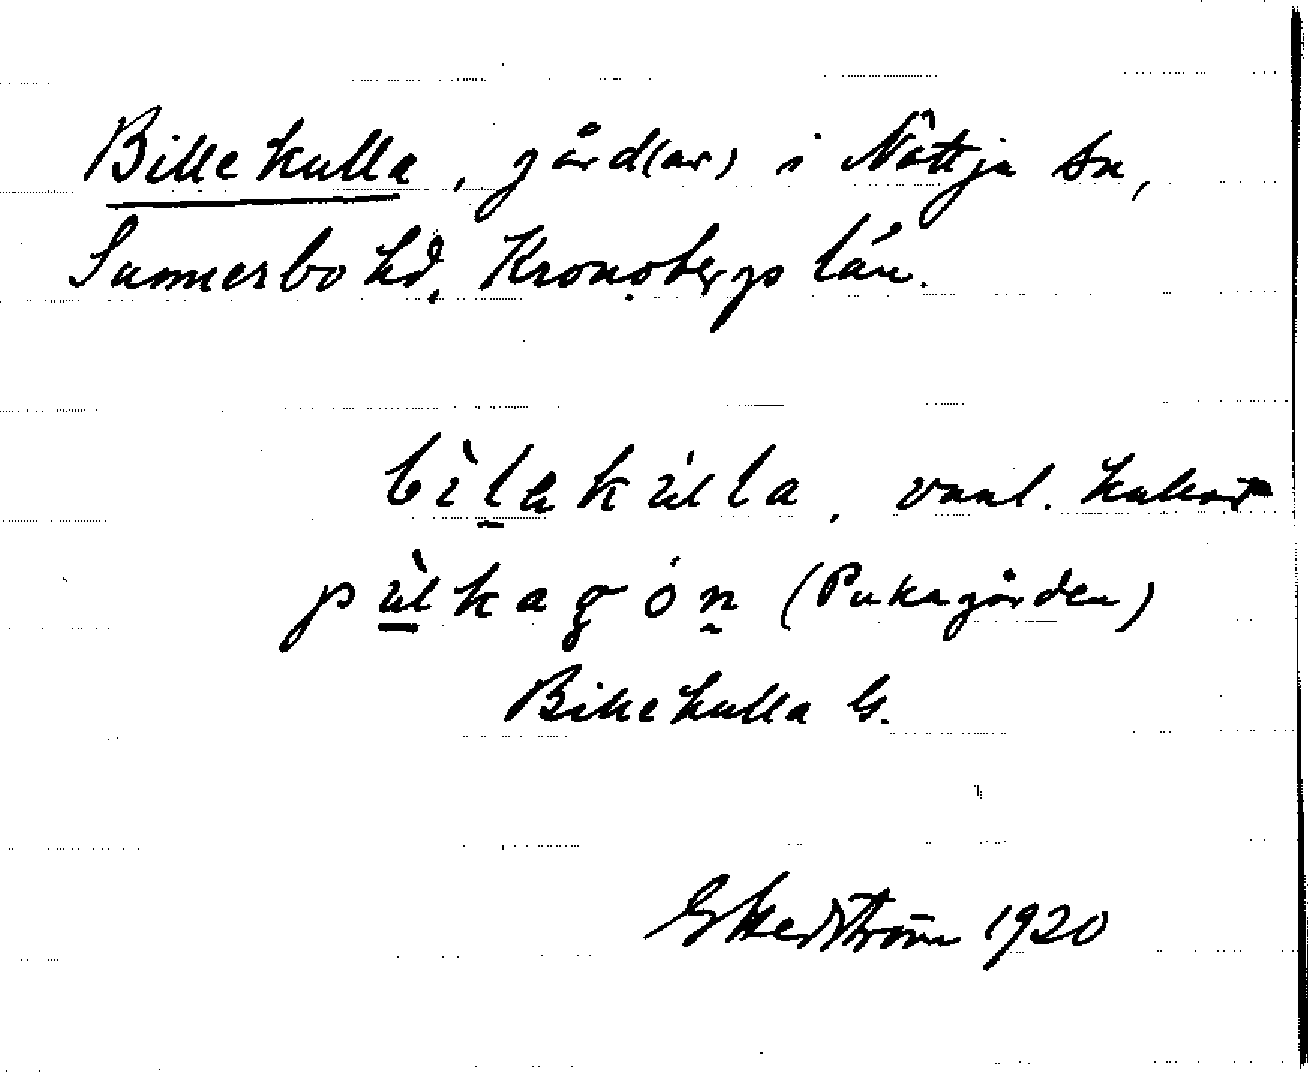 Billekulla, gård(ar) i Nöttja sn,
Sunnerbo hd, Kronobergs län.
bìlakúlla, vanl.
pùkagón (Pukagården)
Billekulla G.
G Hedström 1920